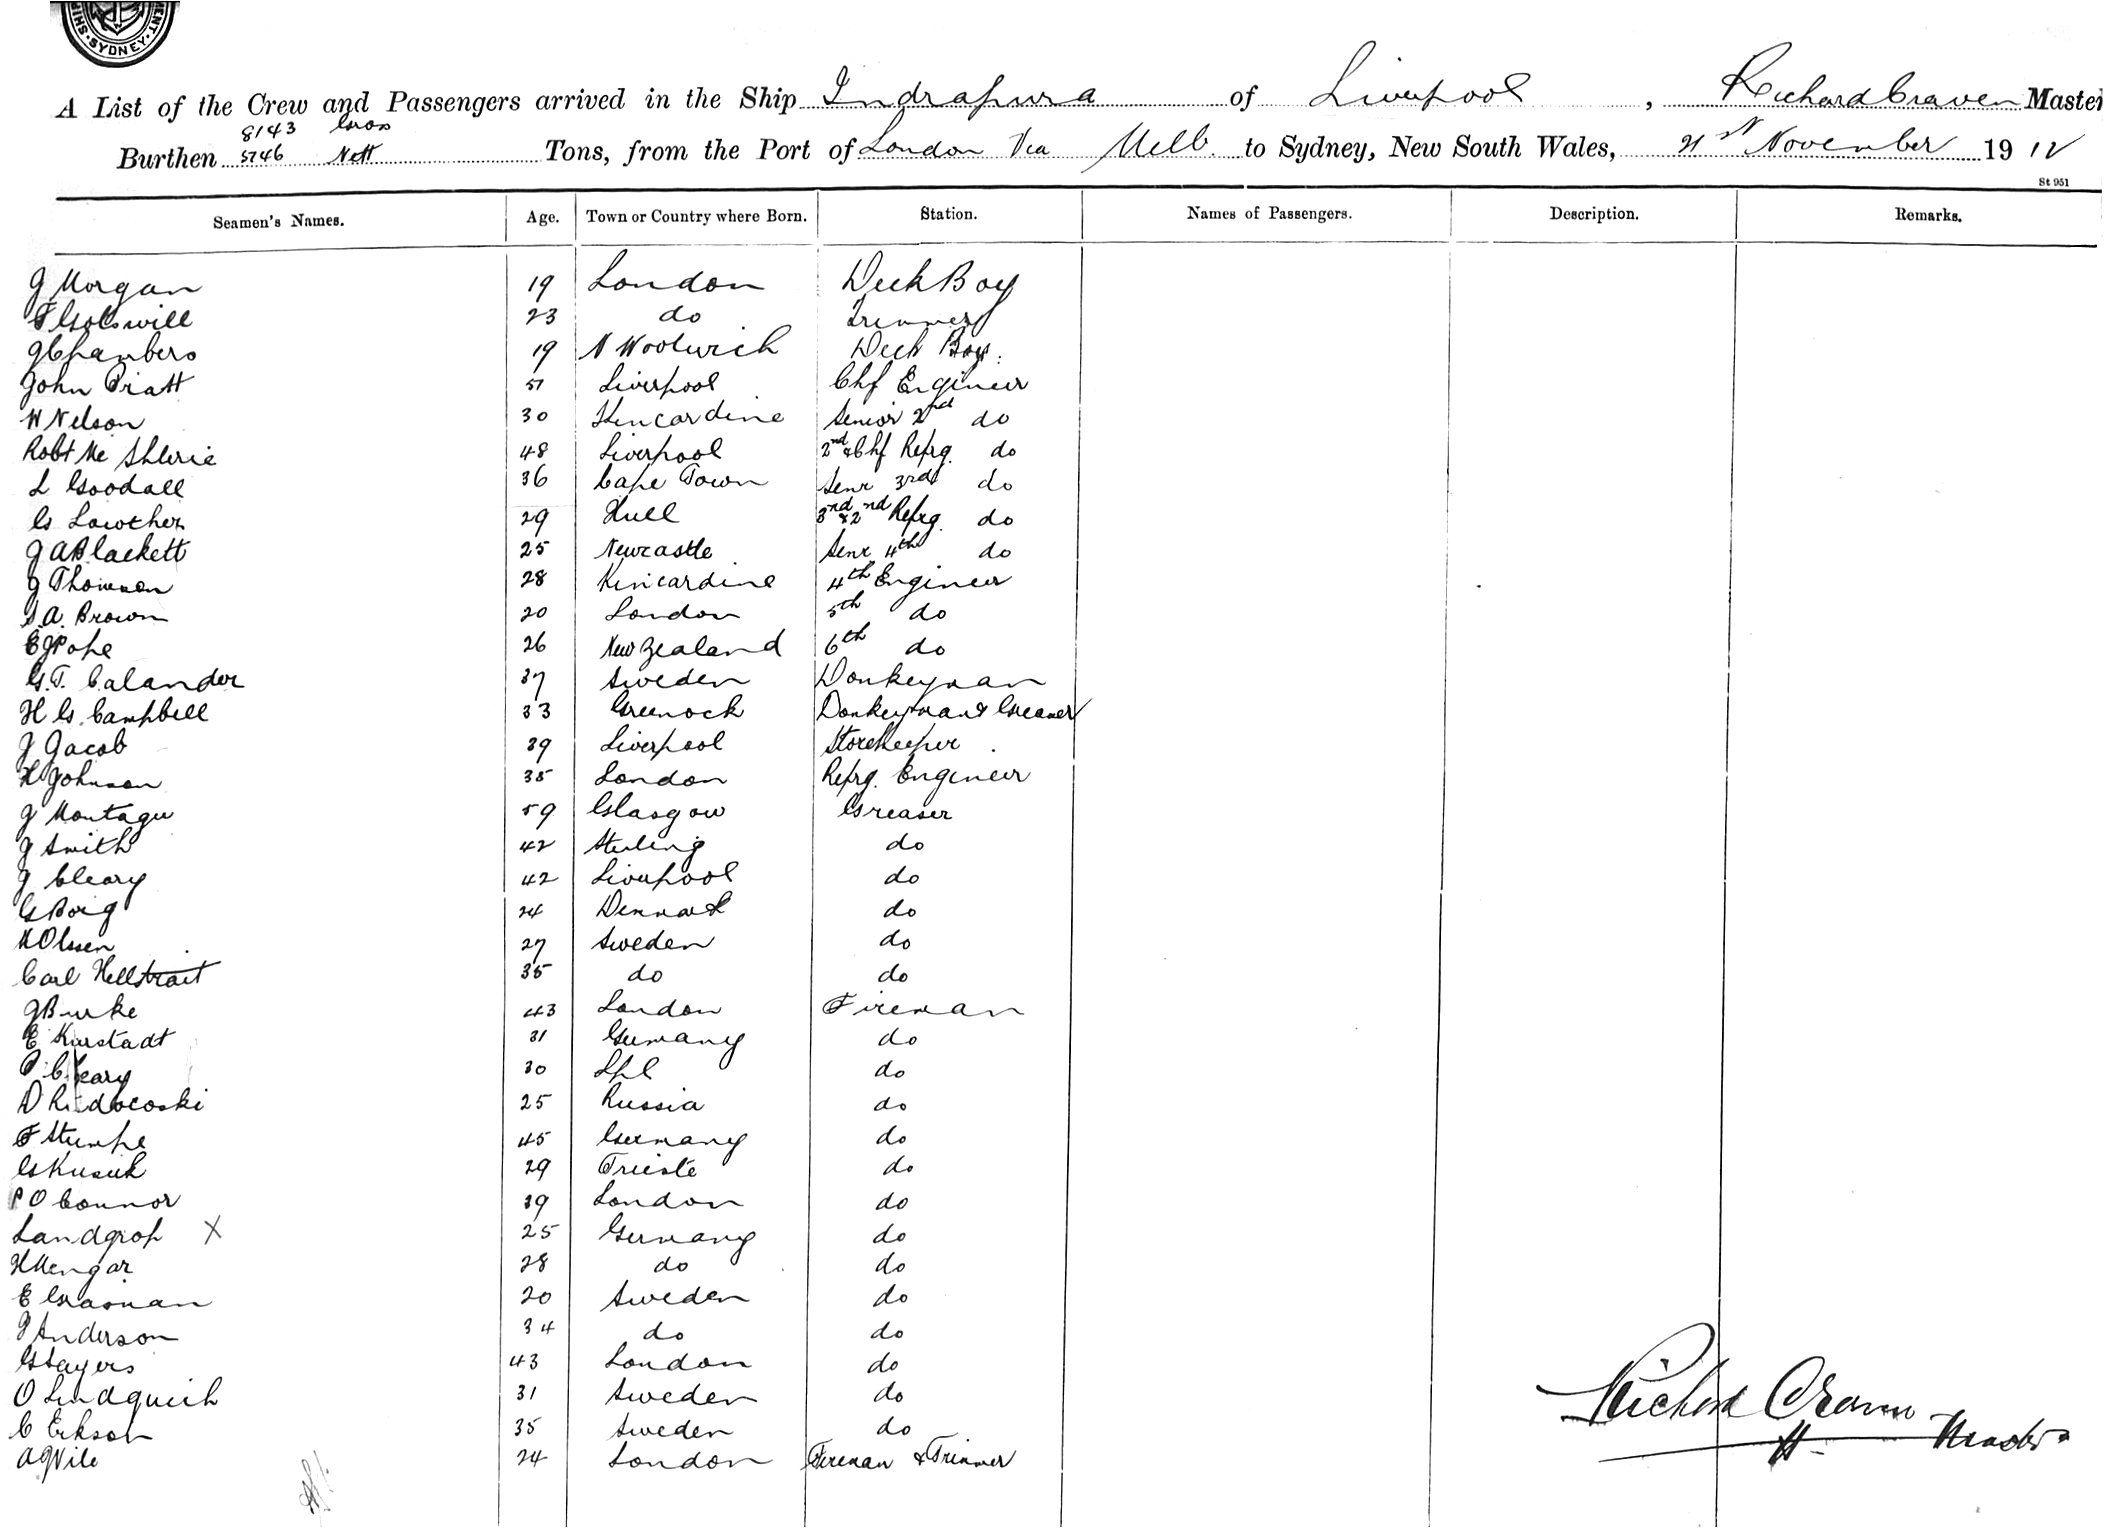 SYDNEY
A List of the Crew and Passengers arrived in the Ship Indrapura of Liverpool, Richard Craven Master
8143 Gross
Burthen 5746 Nett Tons, from the Port of London Via Melb. to Sydney, New South Wales, 21st November 1912
St 951
Seamen's Names. Age. Town or Country where Born. Station. Names of Passengers. Description. Remarks.
J Morgan 19 London Deck Boy
F 23 do Trimmer
J Chambers 19 N Woolwich Deck Boy.
John Pratt 51 Liverpool Chf Engineer
W Nelson 30 Kincardine Senior 2nd do
Robt Mc 48 Liverpool 2nd & Chf Refrg. do
L Goodall 36 Cape Town Senr 3rd do
G Lowther 29 Hull 3rd & 2nd Refrg. do
J A Blackett 25 Newcastle Senr 4th do
J Thomson 28 Kincardine 4th Engineer
S. A. Brown 20 London 5th do
E J Pope 26 New Zealand 6th do
G. T. Calander 37 Sweden Donkeyman
H G. Campbell 33 Greenock Donkeyman & Greaser
J Jacob 39 Liverpool Storekeeper
H Johnson 35 London Refrg. Engineer
J Montagu 59 Glasgow Greaser
J Smith 42 Sterling do
J Cleary 42 Liverpool do
G Borg 24 Denmark do
N Olsen 27 Sweden do
Carl Hellstrait 35 do do
J Burke 43 London Fireman
E Karstadt 31 Germany do
P Cleary 30 Lpl do
D 25 Russia do
F Stumpe 45 Germany do
G Kusick 29 Trieste do
P O Connor 39 London do
Landgrof X 25 Germany do
H Mengar 28 do do
E Grasman 20 Sweden do
J Anderson 34 do do
G Sayers 43 London do
O Lindquich 31 Sweden do
C Erkson 35 Sweden do
A J Vile 24 London Fireman & Trimmer
Richard Craven
Master